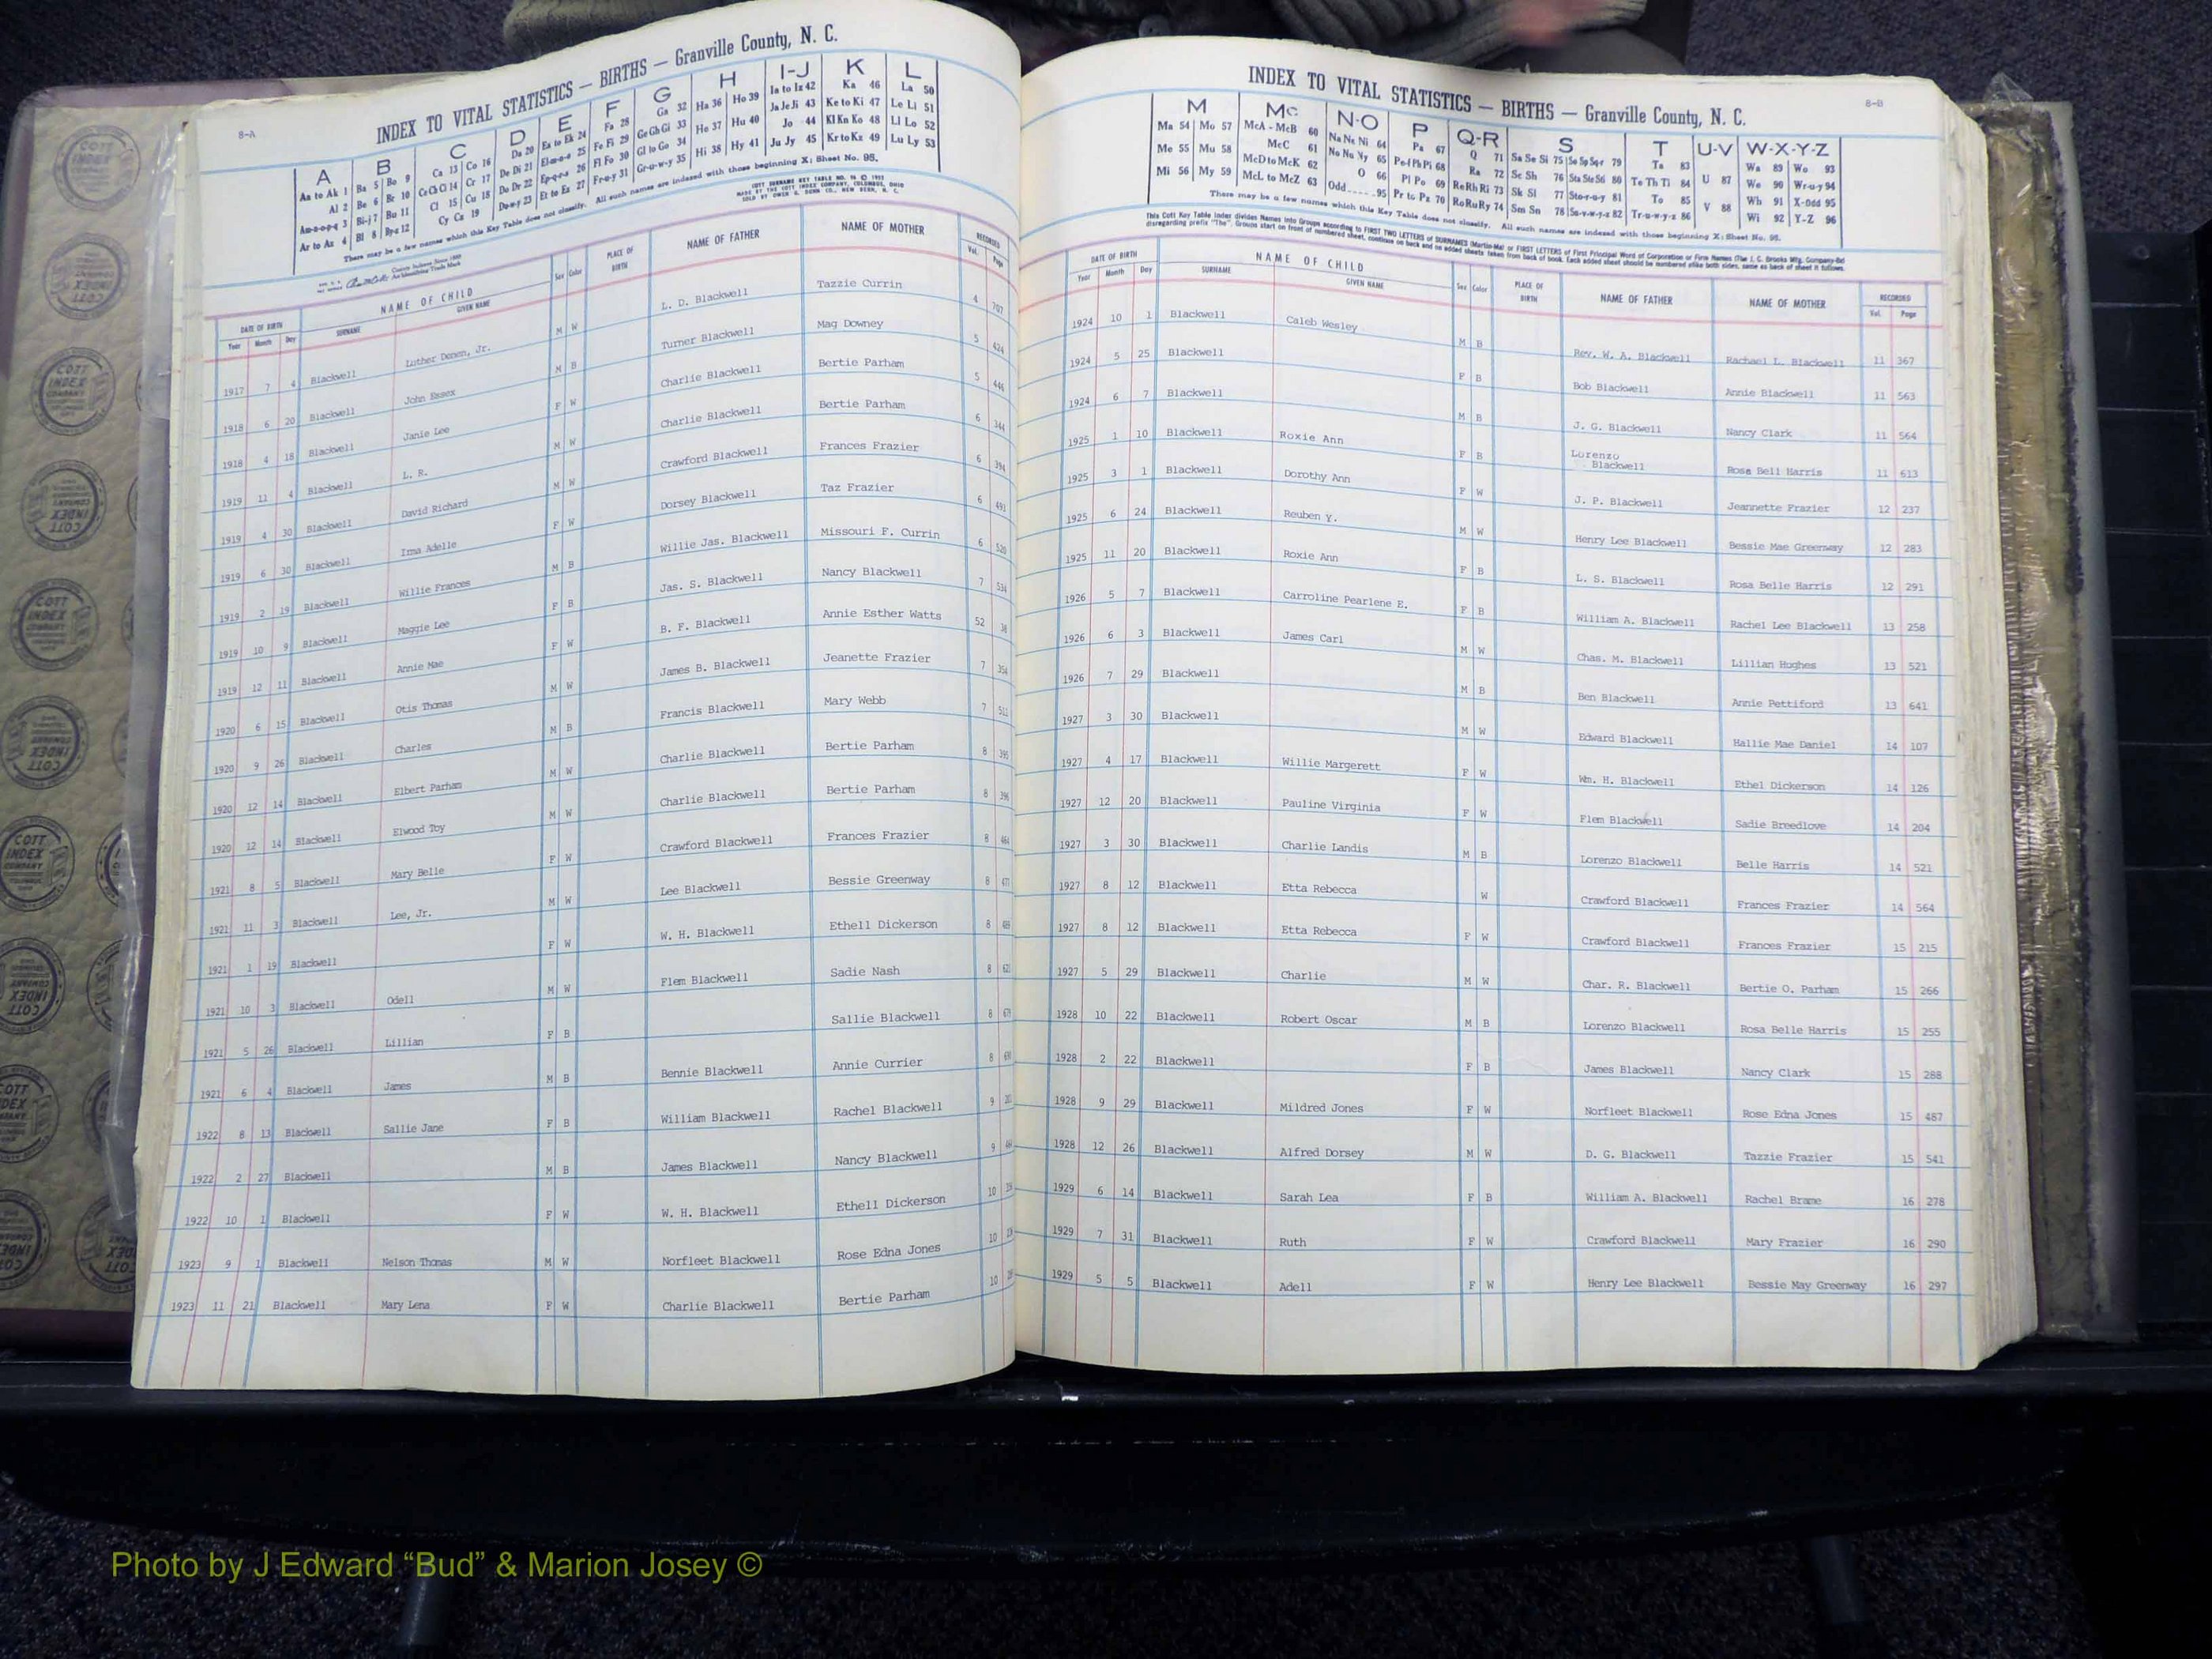 8-A
INDEX TO VITAL STATISTICS — BIRTHS — Granville County, N. C.
A B C D E F G H I-J K L
Aa to Ak 1 Ba 5 Bo 9 Ca 13 Co 16 Da 20 Ea to Ek 24 Fa 28 Ga 32 Ha 36 Ho 39 Ia to Iz 42 Ka 46 La 50
Al 2 Be 6 Br 10 Ce Ch Ci 14 Cr 17 De Di 21 El-m-n-o 25 Fe Fi 29 Ge Gh Gi 33 He 37 Hu 40 Ja Je Ji 43 Ke to Ki 47 Le Li 51
Am-n-o-p-q 3 Bi-j 7 Bu 11 Cl 15 Cu 18 Do Dr 22 Ep-q-r-s 26 Fl Fo 30 Gl to Go 34 Hi 38 Hy 41 Jo 44 Kl Kn Ko 48 Ll Lo 52
Ar to Az 4 Bl 8 By-z 12 Cy Cz 19 Du-w-y 23 Et to Ez 27 Fr-u-y 31 Gr-u-w-y 35 Ju Jy 45 Kr to Kz 49 Lu Ly 53
There may be a few names which this Key Table does not classify. All such names are indexed with those beginning X; Sheet No. 95.
COTT SURNAME KEY TABLE NO.
MADE BY THE COTT INDEX COMPANY, COLUMBUS, OHIO
SOLD BY OWEN G. DUNN CO., NEW BERN, N. C.
DATE OF BIRTH NAME OF CHILD Sex Color PLACE OF BIRTH NAME OF FATHER NAME OF MOTHER RECORDED
Year Month Day SURNAME GIVEN NAME Vol. Page
1917 7 4 Blackwell Luther Donen, Jr. M W L. D. Blackwell Tazzie Currin 4 707
1918 6 20 Blackwell John Essex M B Turner Blackwell Mag Downey 5 424
1918 4 18 Blackwell Janie Lee F W Charlie Blackwell Bertie Parham 5 446
1919 11 4 Blackwell L. R. M W Charlie Blackwell Bertie Parham 6 344
1919 4 30 Blackwell David Richard M W Crawford Blackwell Frances Frazier 6 394
1919 6 30 Blackwell Irma Adelle F W Dorsey Blackwell Taz Frazier 6 493
1919 2 19 Blackwell Willie Frances M B Willie Jas. Blackwell Missouri F. Currin 6 520
1919 10 9 Blackwell Maggie Lee F B Jas. S. Blackwell Nancy Blackwell 7 534
1919 12 11 Blackwell Annie Mae F W B. F. Blackwell Annie Esther Watts 52
1920 6 15 Blackwell Otis Thomas M W James B. Blackwell Jeanette Frazier 7 354
1920 9 26 Blackwell Charles M B Francis Blackwell Mary Webb 7
1920 12 14 Blackwell Elbert Parham M W Charlie Blackwell Bertie Parham 8 395
1920 12 14 Blackwell Elwood Toy M W Charlie Blackwell Bertie Parham 8 396
1921 8 5 Blackwell Mary Belle F W Crawford Blackwell Frances Frazier 8 464
1921 11 3 Blackwell Lee, Jr. M W Lee Blackwell Bessie Greenway 8
1921 1 19 Blackwell F W W. H. Blackwell Ethell Dickerson 8
1921 10 3 Blackwell Odell M W Flem Blackwell Sadie Nash 8
1921 5 26 Blackwell Lillian F B Sallie Blackwell 8
1921 6 4 Blackwell James M B Bennie Blackwell Annie Currier 8
1922 8 13 Blackwell Sallie Jane F B William Blackwell Rachel Blackwell 9
1922 2 27 Blackwell M B James Blackwell Nancy Blackwell 9
1922 10 1 Blackwell F W W. H. Blackwell Ethell Dickerson 10
1923 9 1 Blackwell Nelson Thomas M W Norfleet Blackwell Rose Edna Jones 10
1923 11 21 Blackwell Mary Lena F W Charlie Blackwell Bertie Parham 10
8-B
INDEX TO VITAL STATISTICS — BIRTHS — Granville County, N. C.
M Mc N-O P Q-R S T U-V W-X-Y-Z
Ma 54 Mo 57 McA - McB 60 Na Ne Ni 64 Pa 67 Q 71 Sa Se Si 75 Se Sp Sq-r 79 Ta 83 U 87 Wa 89 Wo 93
Me 55 Mu 58 McC 61 No Nu Ny 65 Pe-f Ph Pi 68 Ra 72 Sc Sh 76 Sta Ste Sti 80 Te Th Ti 84 V 88 We 90 Wr-u-y 94
Mi 56 My 59 McD to McK 62 O 66 Pl Po 69 Re Rh Ri 73 Sk Sl 77 Sto-r-u-y 81 To 85 Wh 91 X-Odd 95
McL to McZ 63 Odd 95 Pr to Pz 70 Ro Ru Ry 74 Sm Sn 78 Su-v-w-y-z 82 Tr-u-w-y-z 86 Wi 92 Y-Z 96
There may be a few names which this Key Table does not classify. All such names are indexed with those beginning X; Sheet No. 95.
This Cott Key Table Index divides Names into Groups according to FIRST TWO LETTERS of SURNAMES (Martin-Ma) or FIRST LETTERS of First Principal Word of Corporation or Firm Names (The J. C. Brooks Mfg. Company-Br)
disregarding prefix "The". Groups start on front of numbered sheet, continue on back and on added sheets taken from back of book. Each added sheet should be numbered alike both sides, same as back of sheet it follows.
DATE OF BIRTH NAME OF CHILD Sex Color PLACE OF BIRTH NAME OF FATHER NAME OF MOTHER RECORDED
Year Month Day SURNAME GIVEN NAME Vol. Page
1924 10 1 Blackwell Caleb Wesley M B Rev. W. A. Blackwell Rachael L. Blackwell 11 367
1924 5 25 Blackwell F B Bob Blackwell Annie Blackwell 11 563
1924 6 7 Blackwell M B J. G. Blackwell Nancy Clark 11 564
1925 1 10 Blackwell Roxie Ann F B Lorenzo Blackwell Rosa Bell Harris 11 613
1925 3 1 Blackwell Dorothy Ann F W J. P. Blackwell Jeannette Frazier 12 237
1925 6 24 Blackwell Reuben Y. M W Henry Lee Blackwell Bessie Mae Greenway 12 283
1925 11 20 Blackwell Roxie Ann F B L. S. Blackwell Rosa Belle Harris 12 291
1926 5 7 Blackwell Carroline Pearlene E. F B William A. Blackwell Rachel Lee Blackwell 13 258
1926 6 3 Blackwell James Carl M W Chas. M. Blackwell Lillian Hughes 13 521
1926 7 29 Blackwell M B Ben Blackwell Annie Pettiford 13 641
1927 3 30 Blackwell M W Edward Blackwell Hallie Mae Daniel 14 107
1927 4 17 Blackwell Willie Margerett F W Wm. H. Blackwell Ethel Dickerson 14 126
1927 12 20 Blackwell Pauline Virginia F W Flem Blackwell Sadie Breedlove 14 204
1927 3 30 Blackwell Charlie Landis M B Lorenzo Blackwell Belle Harris 14 521
1927 8 12 Blackwell Etta Rebecca W Crawford Blackwell Frances Frazier 14 564
1927 8 12 Blackwell Etta Rebecca F W Crawford Blackwell Frances Frazier 15 215
1927 5 29 Blackwell Charlie M W Char. R. Blackwell Bertie O. Parham 15 266
1928 10 22 Blackwell Robert Oscar M B Lorenzo Blackwell Rosa Belle Harris 15 255
1928 2 22 Blackwell F B James Blackwell Nancy Clark 15 288
1928 9 29 Blackwell Mildred Jones F W Norfleet Blackwell Rose Edna Jones 15 487
1928 12 26 Blackwell Alfred Dorsey M W D. G. Blackwell Tazzie Frazier 15 541
1929 6 14 Blackwell Sarah Lea F B William A. Blackwell Rachel Brame 16 278
1929 7 31 Blackwell Ruth F W Crawford Blackwell Mary Frazier 16 290
1929 5 5 Blackwell Adell F W Henry Lee Blackwell Bessie May Greenway 16 297
COTT
INDEX
COMPANY
Photo by J Edward “Bud” & Marion Josey ©